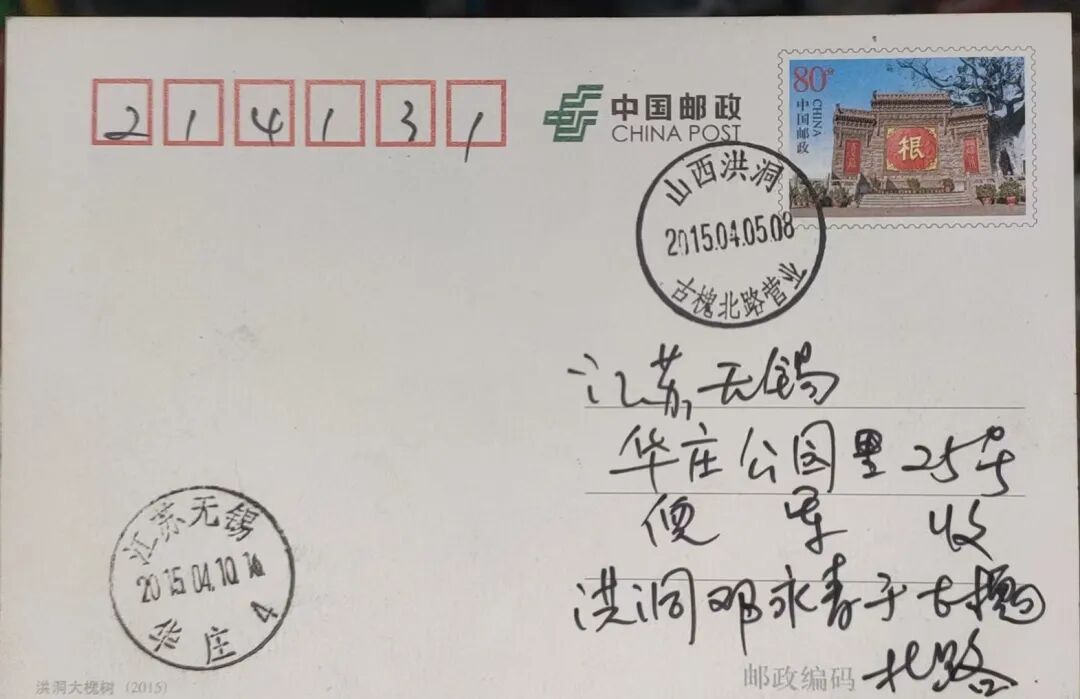 214131
中国邮政
CHINA POST
80分
中国邮政
CHINA
根
山西洪洞
2015.04.05.08
古槐北路营业
江苏无锡
华庄公园里25号
收
洪洞邓永春于古槐
北路
江苏无锡
2015.04.10.16
华庄 4
邮政编码
洪洞大槐树 (2015)